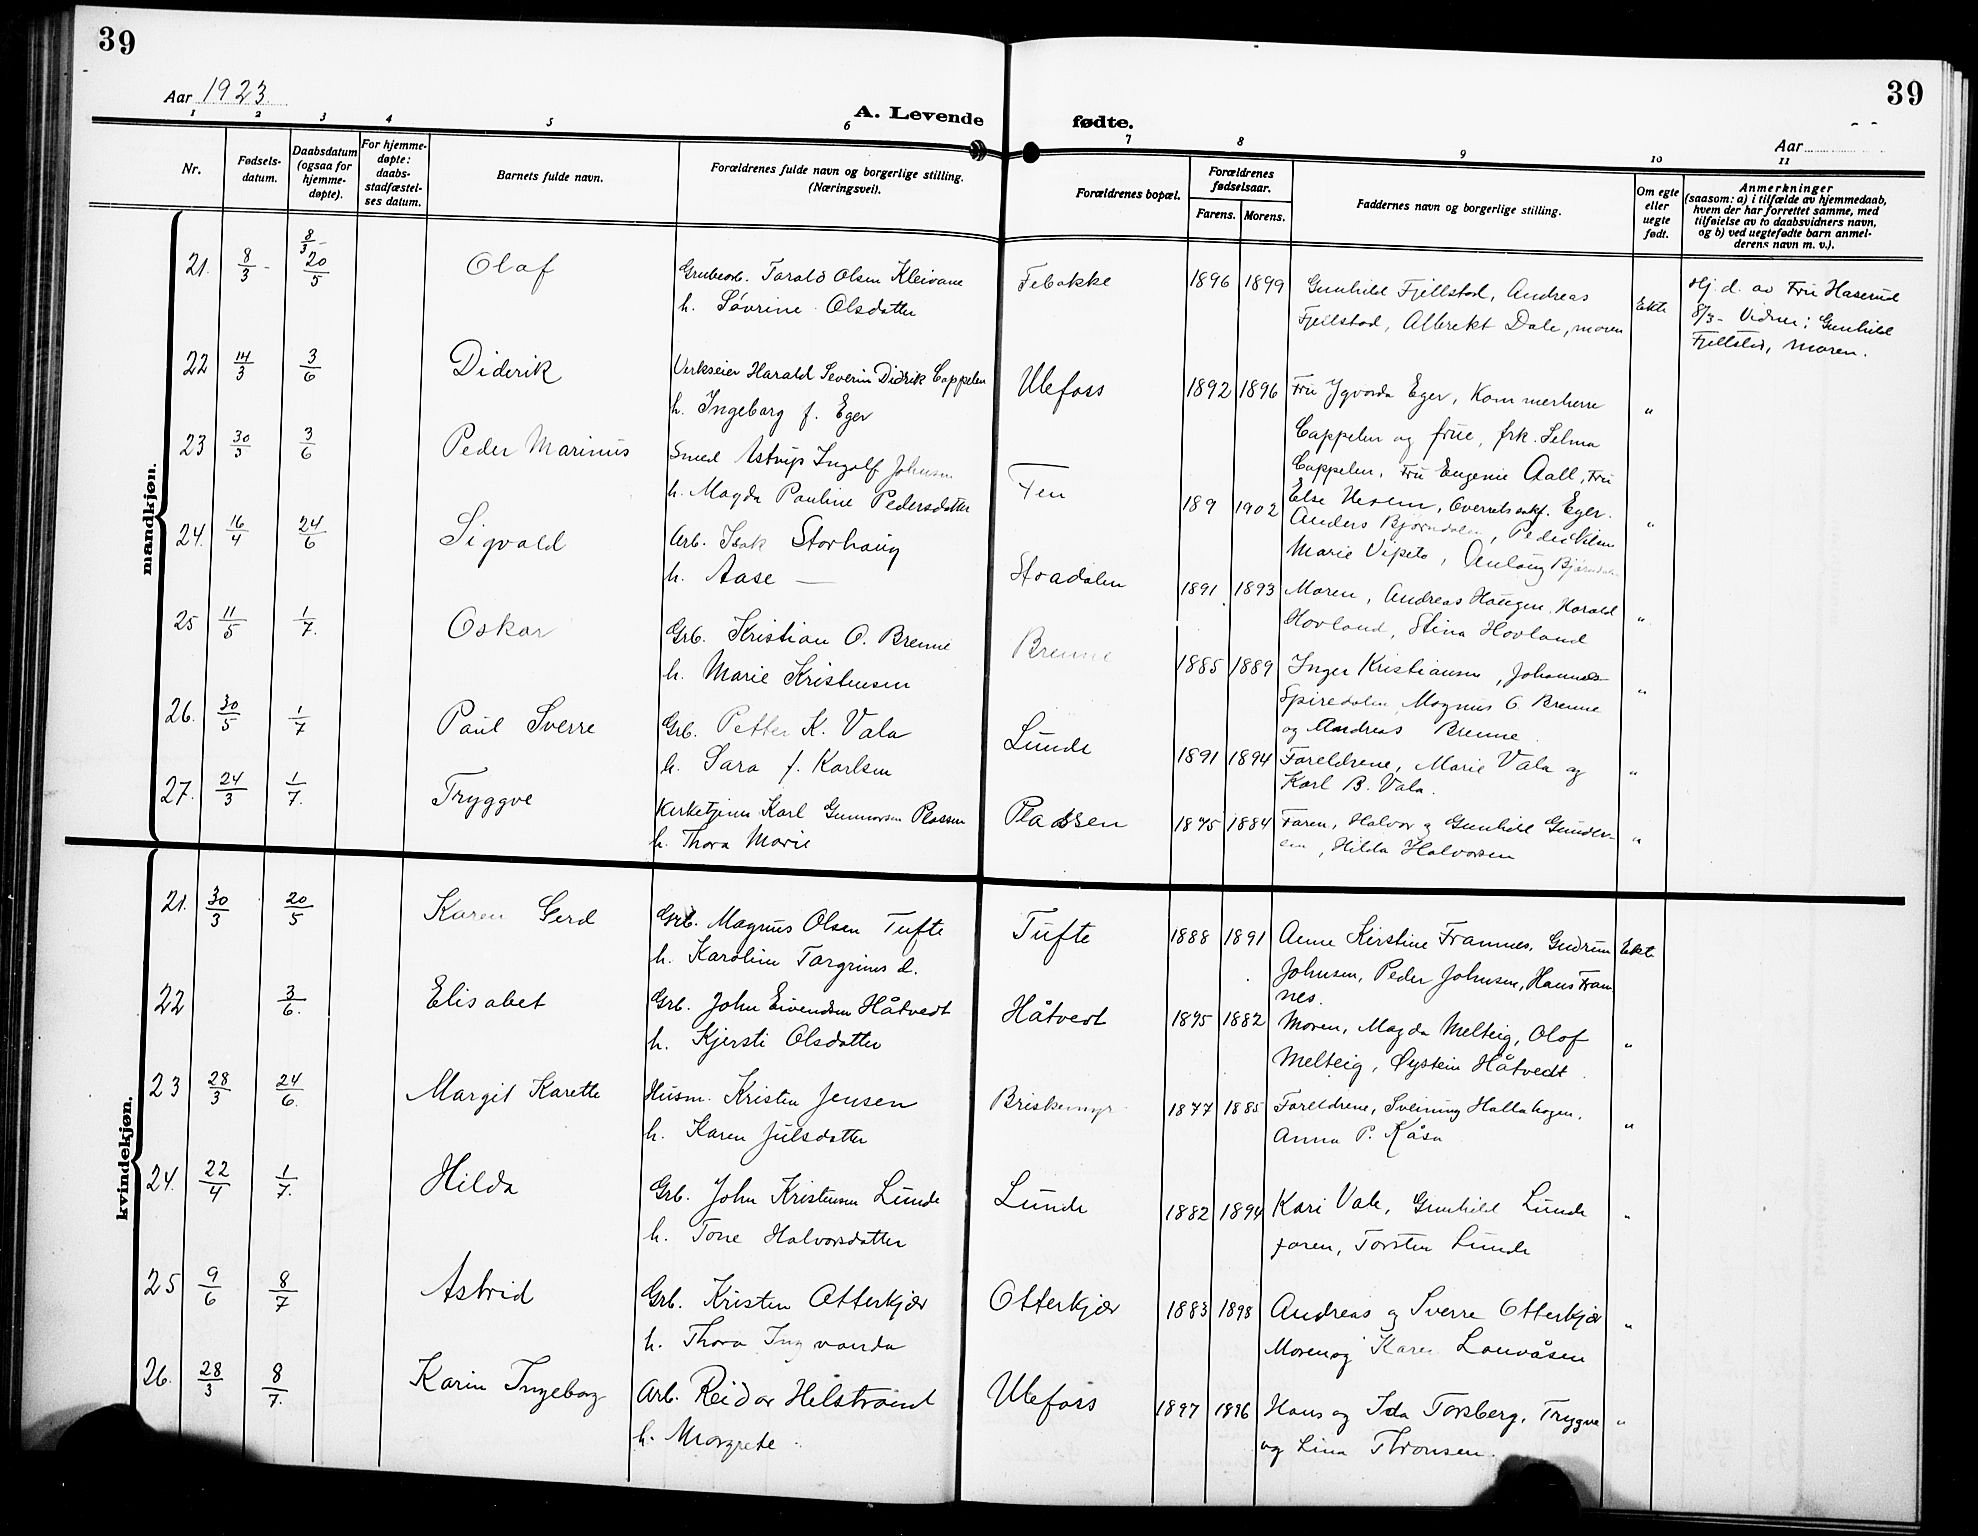 39
39
Aar 1923.
A. Levende fødte.
Aar
1 2 3 4 5 6 7 8 9 10 11
Nr.
Fødsels-
datum.
Daabsdatum
(ogsaa for
hjemme-
døpte).
For hjemme-
døpte:
daabs-
stadfæstel-
ses datum.
Barnets fulde navn.
Forældrenes fulde navn og borgerlige stilling.
(Næringsvei).
Forældrenes bopæl.
Forældrenes
fødselsaar.
Farens. Morens.
Faddernes navn og borgerlige stilling.
Om egte
eller
uegte
født.
Anmerkninger
(saasom: a) i tilfælde av hjemmedaab,
hvem der har forrettet samme, med
tilføielse av to daabsvidners navn,
og b) ved uegtefødte barn anmel-
derens navn m. v.).
mandkjøn.
21. 8/3 - 8/3 - 20/5 Olaf Grubearb. Tarald Olsen Kleivane Febakke 1896 1899 Gunhild Fjellstad, Andreas Ekte Hj. d. av Fru Haserud
h. Søvrine Olsdatter Fjellstad, Albrekt Dale, moren 8/3 - Vidner: Gunhild
Fjellstad, Moren.
22 14/3 3/6 Diderik Verkseier Harald Severin Didrik Cappelen Ulefoss 1892 1896 Fru Ygvorda Eger, Kammerherre "
h. Ingeborg f. Eger Cappelen og frue, frk. Selma
Cappelen, Fru Eugenie Aall, Fru
Else , Eger.
23 30/3 3/6 Peder Marinius Smed Astrup Ingolf Johnsen Fen 189 1902 Anders Bjørndalen, "
h. Magda Pauline Pedersdatter Marie Vipeto, Bjørndalen
24. 16/4 24/6 Sigvald Arb. Isak Storhaug Stradalen 1891 1893 Moren, Andreas Haugen, Harald "
h. Aase — Hovland, Stina Hovland
25 11/5 1/7. Oskar Grb. Kristian O. Brenne Brenne 1885 1889 Inger Kristiansen, Johannes "
h. Marie Kristensen Spiredalen, Magnus O. Brenne
og Andreas Brenne.
26. 30/5 1/7 Paul Sverre Grb. Petter K. Vala Lunde 1891 1894 Foreldrene, Marie Vala og "
h. Sara f. Karlsen Karl B. Vala.
27. 24/3 1/7. Tryggve Kirketjener Karl Gunnarsen Plassen Pladsen 1875 1884 Faren, Halvor og Gunhild Gunder- "
h. Thora Marie sen, Hilda Halvorsen
kvindekjøn.
21. 30/3 20/5 Karen Gerd Grb. Magnus Olsen Tufte Tufte 1888 1891 Anne Kirstine Framnes, Gudrun Ekte
h. Karoline Targrims d. Johnsen, Peder Johnsen, Hans Fram
nes.
22 3/6. Elisabet Grb. John Eivendsen Håtvedt Håtvedt 1895 1882 Moren, Magda Melteig, Olof "
h. Kjersti Olsdatter Melteig, Øystein Håtvedt.
23 28/3 24/6. Margit Karette Husm. Kristen Jensen Briskemyr 1877 1885 Foreldrene, Sveinung Hallahagen, "
h. Karen Julsdatter Anna P. Kåsa
24. 22/4 1/7. Hilda Grb. John Kristensen Lunde Lunde 1882 1894 Kari Vale, Gunhild Lunde "
h. Tone Halvorsdatter faren, Torsten Lunde
25 9/6 8/7 Astrid Grb. Kristen Otterkjær Otterkjær 1883 1898 Andreas og Sverre Otterkjær "
h. Thora Ingvarda Moren og Karen Lauvåsen
26. 28/3 8/7. Karin Ingeborg Arb. Reidar Hilstrømt Ulefoss 1897 1896 Hans og Ida Torsberg, Trygve "
h. Margrete og Lina Thronsen.